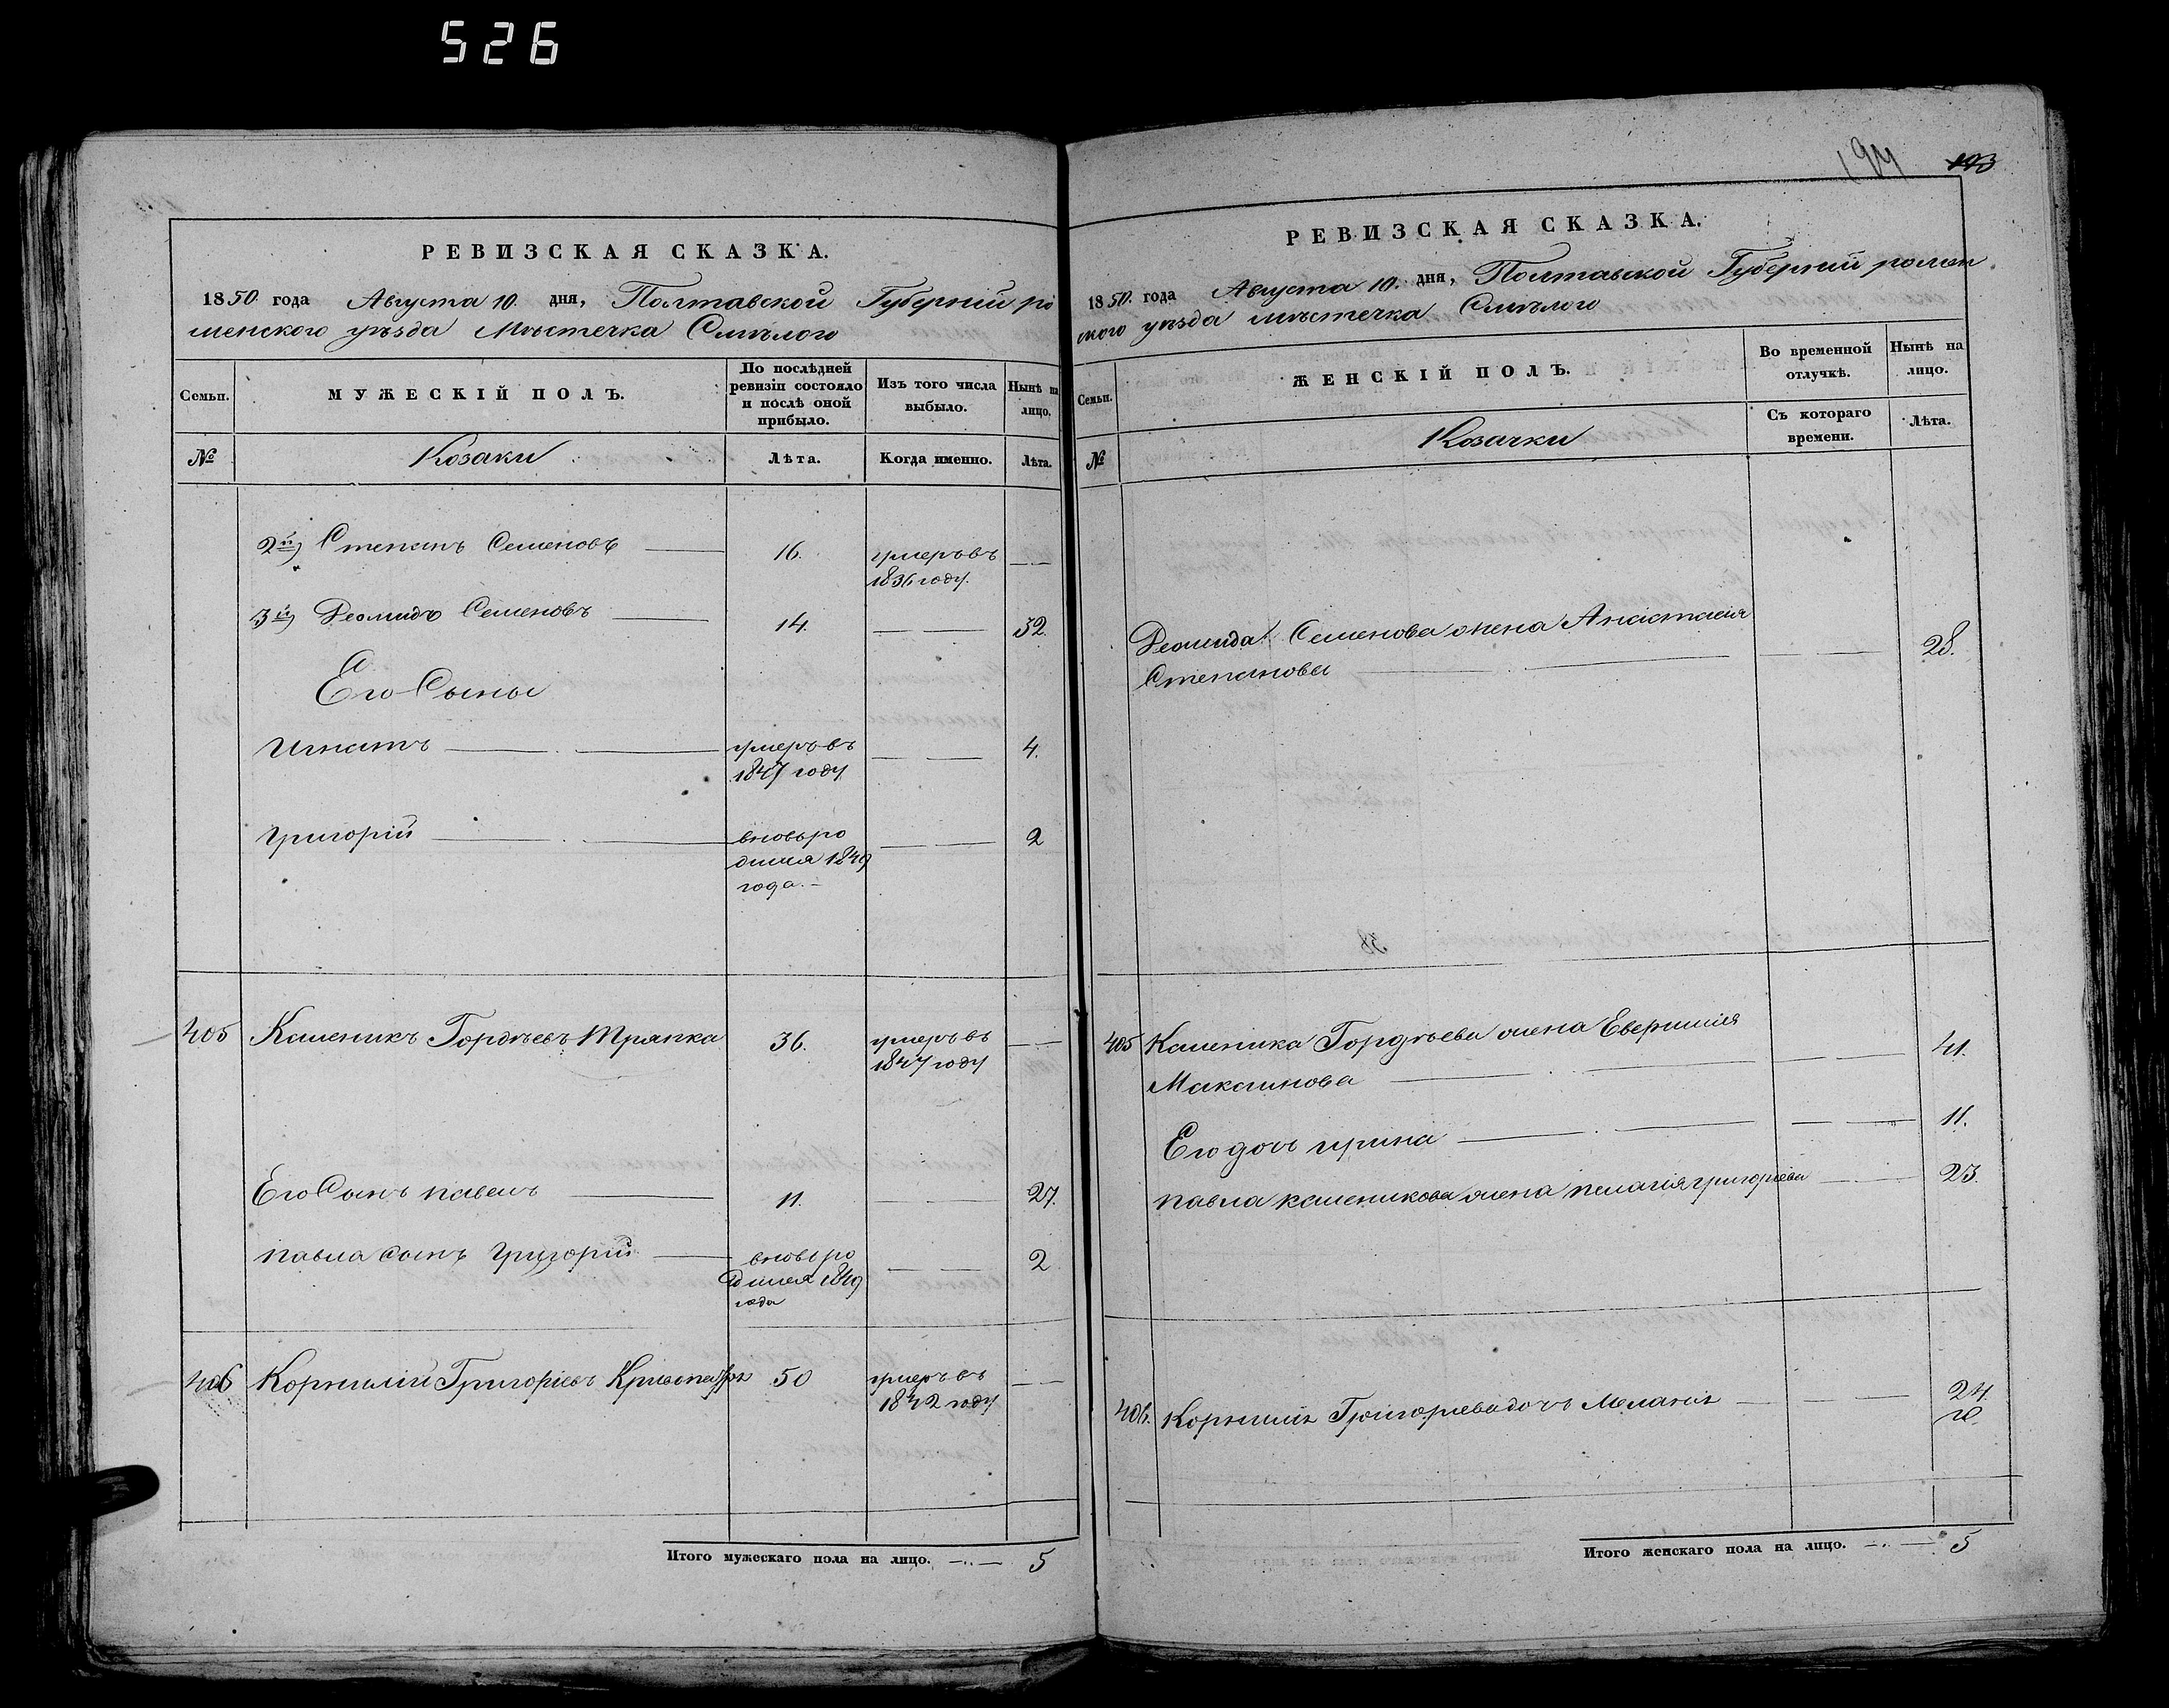 526
РЕВИЗСКАЯ СКАЗКА.
1850 года Августа 10. дня, Полтавской Губерній ро
менского уѣзда Мѣстечка Смѣлого
Семьи.
МУЖЕСКІЙ ПОЛЪ.
По послѣдней ревизіи состояло и послѣ оной прибыло.
Изъ того числа выбыло.
Нынѣ на лицо.
№
Козаки
Лѣта.
Когда именно.
Лѣта.
2й) Степанъ Семеновъ 16. умеръ въ
1836 году.
3й) Деомидъ Семеновъ 14. 32.
Его Сыны
Игнатъ умеръ въ 4.
1847 году
Григорій вновь ро 2
дился 1849
года.
405 Каленикъ Гордѣевъ Тряпка 36. умеръ въ
1847 году
Его Сынъ павелъ 11. 27.
павла сынъ Григорій вновь ро 2
дился 1849
года
406 Корнилій Григоріевъ 50 умеръ въ
1842 году
Итого мужескаго пола на лицо. 5
194 193
РЕВИЗСКАЯ СКАЗКА.
1850. года Августа 10. дня, Полтавской Губерній ромен
ского уѣзда мѣстечка Смѣлого
Семьи.
ЖЕНСКІЙ ПОЛЪ.
Во временной отлучкѣ.
Нынѣ на лицо.
№
Козачки
Съ котораго времени.
Лѣта.
Деомида Семенова жена Анастасія
Степановы 28.
405 Каленика Гордѣева жена Еверишія
Макаинова 41.
Его дочь ирина 11.
павла каленикова жена пелагія григоріева 23.
406. Корнилія Григоріева дочь Меланія 24.
Итого женскаго пола на лицо. 5